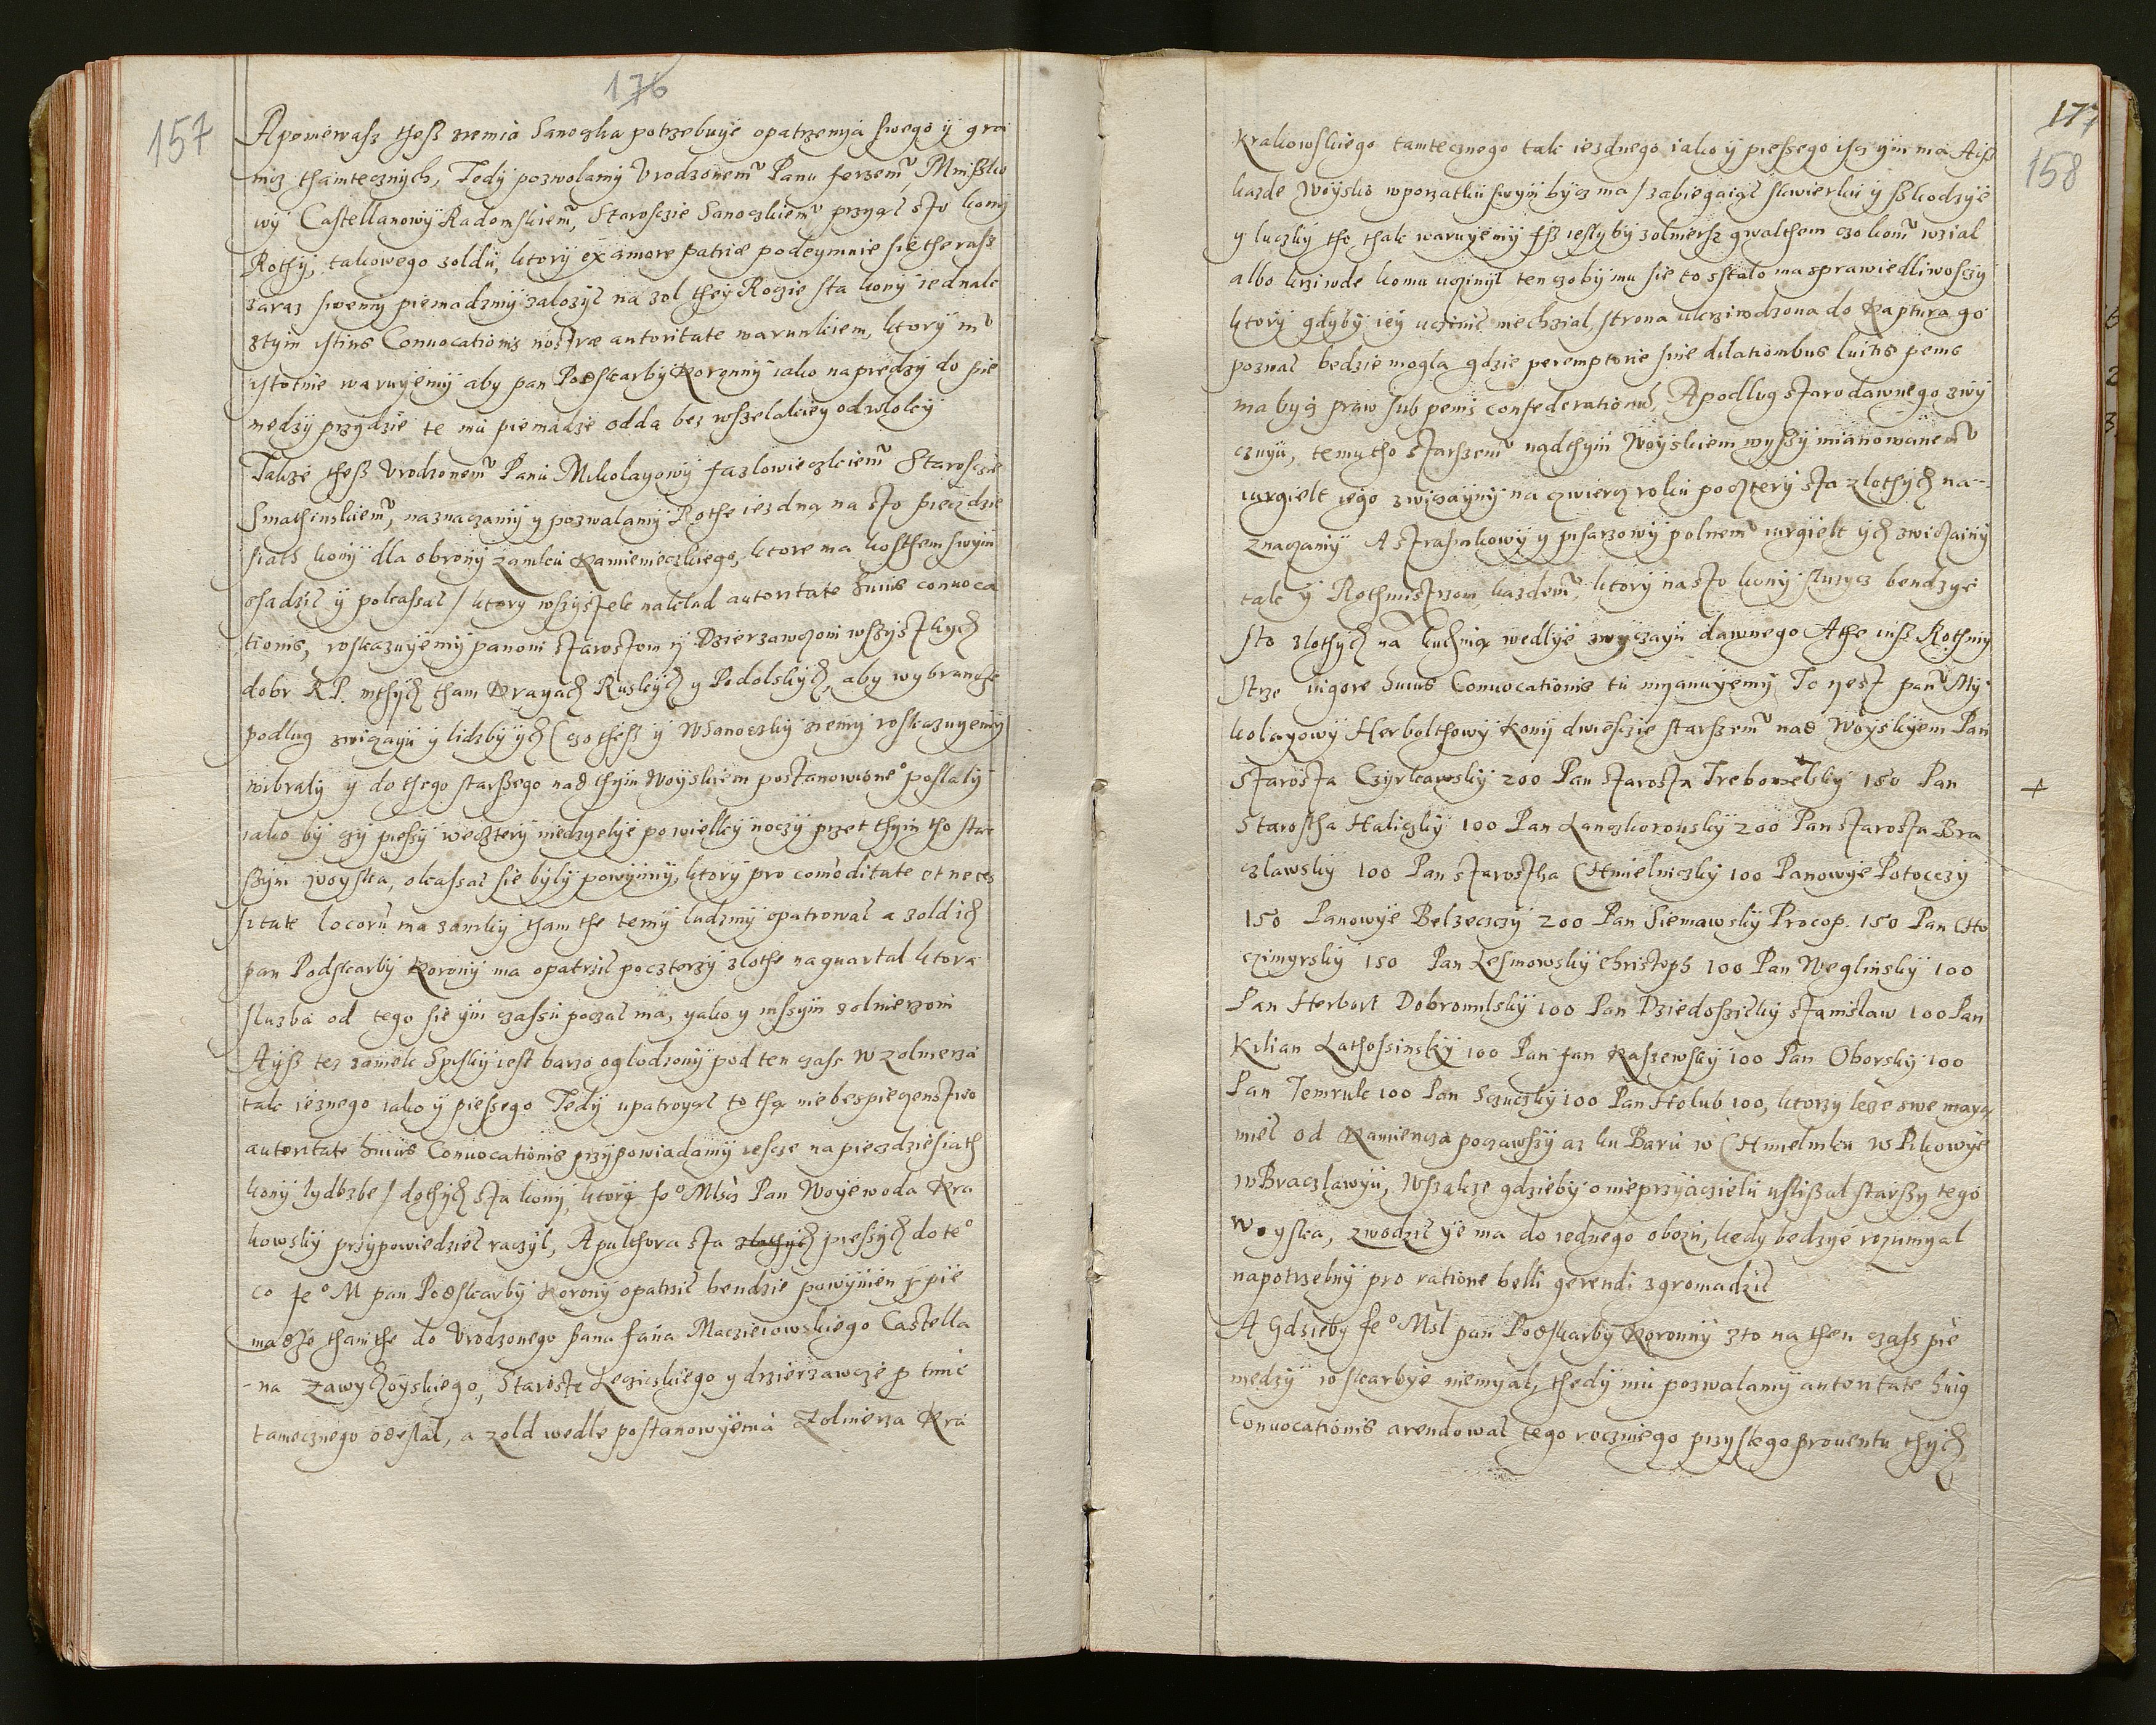 176
157
Aponiewasz thesz ziemia Sanoczka potrzebuye opatrzenya swego ÿ gra
nicz thamtecznych, Tedÿ pozwolamÿ Urodzonemu Panu Jerzemu Mnissko
wÿ Castellanowÿ Radomskiemu, Starosczie Sanoczkiemu przyąć sto konÿ
Rothÿ, takowego zoldu, ktorÿ ex amore patriæ podeymuie sie the rasz
zaraz swemÿ pieniadzmÿ zalozÿć na zol theÿ Roczie sta konÿ iednak
ztÿm istius Conuocationis nostræ autoritate warunkiem, ktorÿ mu
istotnie waruyemÿ aby pan Podskarbÿ Koronnÿ iako napredzÿ do pie
niedzÿ przydzie te mu pieniadze odda bez wszelakieÿ odwlokÿ
Takze thesz Urodzonemu Panu Mikolayowÿ Jazlowieczkiemu Staroscie
Sniathinskiemu, naznaczamÿ y pozwalamÿ Rothe iezdna na sto pieczdzie
siath konÿ dla obronÿ zamku Kamienieczkiego, ktore ma kosthem swÿm
osadzić ÿ pokassać / ktory wszÿstek naklad autoritate huius conuoca
tionis, roskazuÿemÿ panom starostom ÿ Dzierzawczom wszÿstkÿch
dobr R.P. w thÿch tham Krayach Ruskÿch y Podolskÿch, aby wybrancze
podlug zwiczayu ÿ lidzbÿ ÿch (czo thesz ÿ W Sanoczkÿ ziemÿ roskazuyemÿ
wibralÿ y do thego starszego nad thÿm Woÿskiem postanowione° poslalÿ
iako bÿ czÿ piesÿ wecztery niedzyelÿe po wielkÿ noczÿ przet thÿm tho star
szÿm woyska, okassać sie bÿlÿ powÿnnÿ, ktorÿ pro comoditate et neces
sitate locorum ma zamkÿ tham the temÿ ludzmÿ opatrować a zold ich
pan Podskarbÿ Koronÿ ma opatrzić po czterzÿ zlothe na quartal ktora
sluzba od tego sie ÿm czassu poczać ma, yako y inssÿm zolnierzom
Aÿsz tez zamek Spiskÿ iest barzo oglodzonÿ pod ten czass w zolnierza
tak ieznego iako ÿ piessego Tedÿ upatroyąć to tha niebespieczenstwo
autoritate huius Conuocationis przÿpowiadamÿ iescze na pieczdziesiath
konÿ lydbzbe / dothÿch sta konÿ, ktorÿ Je° Mscz Pan Woÿewoda Kra
kowskÿ przÿpowiedzieć raczÿl, A pulthora sta zlothÿch piessÿch do te°
co Je° M pan Podskarbÿ Koronÿ opatrzić bendzie powÿnien ÿ pie
niadze tham the do Urodzonego pana Jana Maczieiowskiego Castella
-na Zawÿchoÿskiego, Staroste Leziczkiego y dzierzawcze
tamecznego odeslać, a zold wedle postanowÿenia Zolnierza Kra
177
158
Krakowskiego tamtecznego tak iezdnego iako ÿ piessego iscz ÿm ma Aisz
kazde Woÿsko wporzatku swÿm bÿcz ma / zabiegaiąć skwierku ÿ szkodzÿe
y luczkÿ tho thak waruyemÿ Jsz ieslybÿ zolniersz gwalthem czo komu wziąl
albo krziwde komu uczinÿl ten czobÿ mu sie to sstalo ma sprawiedliwosczÿ
ktorÿ gdyby ieÿ uczinić niechzial, strona ukrziwdzona do Kaptura go
poznać bedzie mogla gdzie peremptorie sine dilationibus luitis penis
ma bycz praw sub penis confederationis, A podlug starodawnego zwÿ
czayu, temu tho starszemu nadthÿm Woÿskiem wyszÿ mianowanemu
iurgielt iego zwiczaÿnÿ na czwiercz roku po czterÿ sta zlothÿch na-
znaczamÿ A straznikowÿ y pisarzowÿ polnemu iurgielt ÿch zwiczainÿ
tak ÿ Rothmistrzom kazdemu, ktorÿ na sto konÿ sluzÿcz bendzÿe
sto zlothÿch na kuchnią wedlÿe zwyczayu dawnego A the iusz Rothmi
strze uigore huius Conuocationis tu mianuyemÿ To yest panu Mÿ
kolayowÿ Herbolthowÿ Konÿ dwiescie starszemu nad Woÿskÿem Pan
Starosta Czÿrkawskÿ 200 Pan starosta Trebowelskÿ 150 Pan
+
Starostha Haliczkÿ 100 Pan Lanczkoronskÿ 200 Pan starosta Bra
czlawskÿ 100 Pan starostha Chmielniczkÿ 100 Panowÿe Potoczczÿ
150 Panowÿe Belzeczczÿ 200 Pan Sieniawskÿ Procop. 150 Pan Cho
czimyrskÿ 150 Pan Lesniowskÿ Christoph 100 Pan Weglinskÿ 100
Pan Herbort Dobromilskÿ 100 Pan Dziedoszickÿ Stanislaw 100 Pan
Kilian Lathossinskÿ 100 Pan Jan Kaszewskÿ 100 Pan Oborskÿ 100
Pan Temruk 100 Pan Sczuczkÿ 100 Pan Holub 100, ktorzy leze swe maya
mieć od Kamiencza poczawszÿ az ku Baru w Chmielniku W Pikowÿe
w Braczlawyu, Wszakze gdziebÿ o nieprzyaczielu uslissal starszy tego
Woyska, zwodzić ÿe ma do iednego obozu, kedy bedzye rozumyal
napotrzebnÿ pro ratione belli gerendi zgromadzić
A Gdzieby Je° Msć pan Podskarbÿ Koronnÿ zto na then czass pie
niedzÿ w skarbÿe niemÿal, thedÿ mu pozwalamÿ autoritate huius
Conuocationis arendować tego rocznego przyslego prouentu thÿch